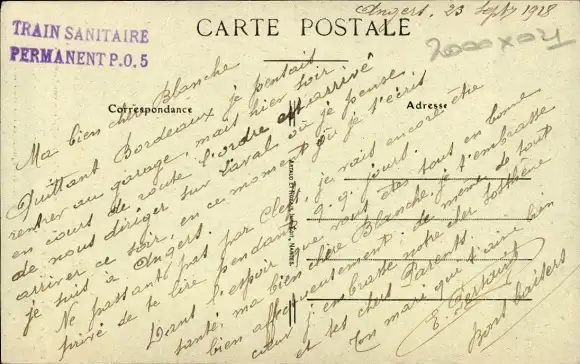 Angers. 23 Sept 1918
TRAIN SANITAIRE
PERMANENT P.O. 5
CARTE POSTALE
Correspondance
Adresse
Ma bien chère Blanche
Quittant Bordeaux je pensait
rentrer au garage, mais hier soir
en cours de route l'ordre est arrivé
de nous diriger sur Laval où je pense
arriver ce soir, en ce moment où je t'écris
je suis à Angers.
Ne passant pas par Clers, je vais encore être
privé de te lire pendant q.q. jours.
Dans l'espoir que vous êtes tous en bonne
santé ma bien chère Blanche, je t'embrasse
bien affectueusement: de même de tout
cœur j'embrasse notre cher Sosthène
et tes chers Parents.
Ton mari que t'aime bien
E.
Bons baisers